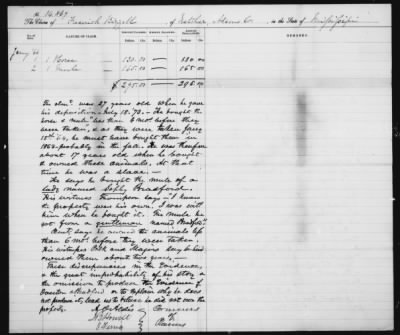 No. 14,969
The Claim of Fredrick Barnett of Natchez, Adams Co in the State of Mississippi
No. of Item. NATURE OF CLAIM. Amount Claimed. Amount Allowed. Amount Disallowed.
Dolls. Cts. Dolls. Cts. Dolls. Cts.
1 1 Horse 130.00 — 130 00
2 1 Mule 165.00 — 165.00
$295.00 295.00
The clmt was 27 years old when he gave
his deposition July 18.'73. He bought the
horse & mule less than 6 mos. before they
were taken, & as they were taken Jany
18th '64, he must have bought them in
1863 probably in the fall. He was therefore
about 17 years old when he bought
& owned these animals. At that
time he was a slave. —
He says he bought the mule of a
lady named Sophy Bradford.
His witness Thompson says "I know
the property was his own. I was with
him when he bought it. The mule he
got from a gentleman named Bradford"
Clmt. says he owned the animals less
than 6 mos. before they were taken.
His witnesses and say he has
owned them about two years, —
These discrepancies in the evidence,
& the great improbability of his story &
the omission to produce the evidence of
or to explain why he does
not produce it, lead us to believe he did not own the
property.
A.O. Aldis
J.B. Howell
O. Ferriss
Commrs
of
Claims